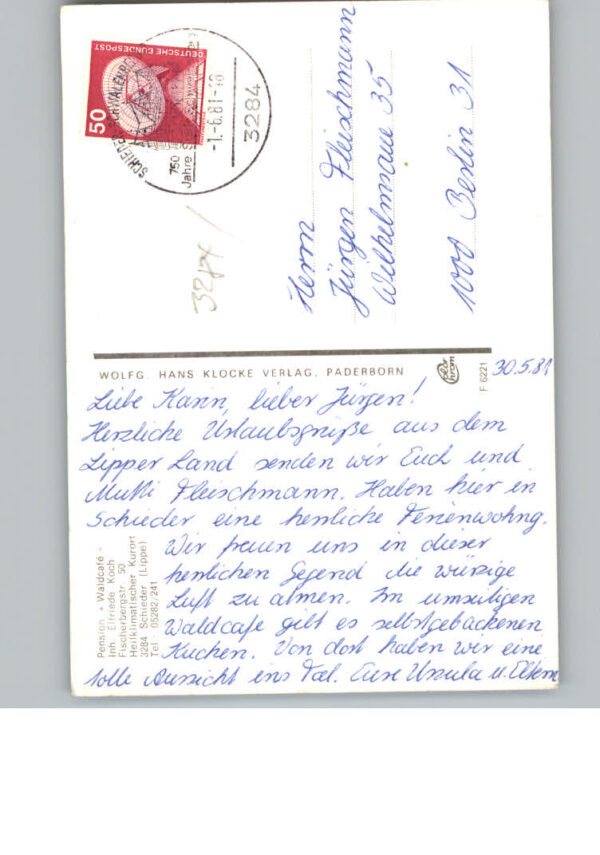 DEUTSCHE BUNDESPOST
50
SCHIEDER-SCHWALENBERG
750
Jahre
-1.-6.81-18
3284
Herrn
Jürgen Fleischmann
Wilhelmsaue 35
1000 Berlin 31
WOLFG. HANS KLOCKE VERLAG, PADERBORN
F 6221
30.5.81
Liebe Karin, lieber Jürgen!
Herzliche Urlaubsgrüße aus dem
Lipper Land senden wir Euch und
Mutti Fleischmann. Haben hier in
Schieder eine herrliche Ferienwohng.
Wir freuen uns in dieser
herrlichen Gegend die würzige
Luft zu atmen. Im umseitigen
Waldcafe gibt es selbstgebackenen
Kuchen. Von dort haben wir eine
tolle Aussicht ins Tal. Eure Ursula u. Eltern
Pension + Waldcafé -
Inh. Elfriede Koch
Fischerbergstr. 50
Heilklimatischer Kurort
3284 Schieder (Lippe)
Tel. 05282/241